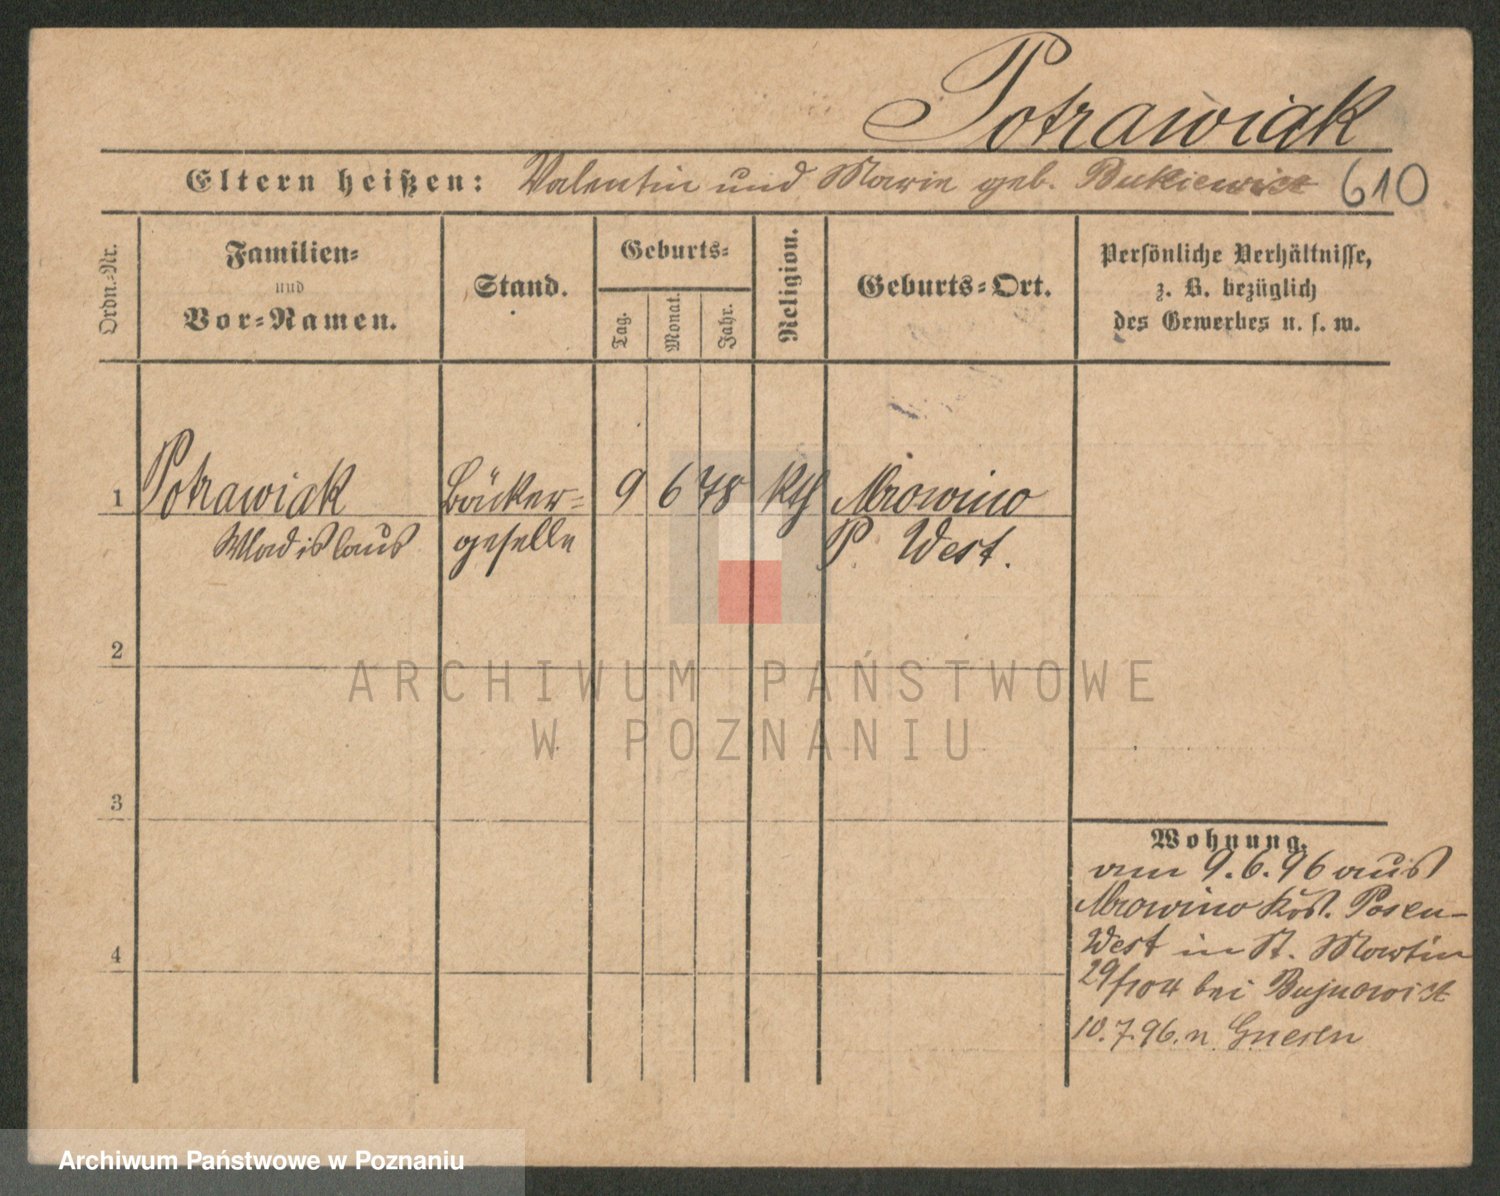 Potrawiak
Eltern heißen: Valentin und Marie geb. 610
Ordn.-Nr.
Familien-
und
Vor-Namen.
Stand.
Geburts-
Tag.
Monat.
Jahr.
Religion.
Geburts-Ort.
Persönliche Verhältnisse,
z. B. bezüglich
des Gewerbes u. s. w.
1 Potrawiak Bäcker- 9 6 78 kth Mrowino
Wladislaus geselle P. West.
2
ARCHIWUM PAŃSTWOWE
W POZNANIU
3
Wohnung.
am 9.6.96 aus
Mrowino Krs. Posen-
West in St. Martin
29 bei
10.7.96. n Gnesen
4
Archiwum Państwowe w Poznaniu